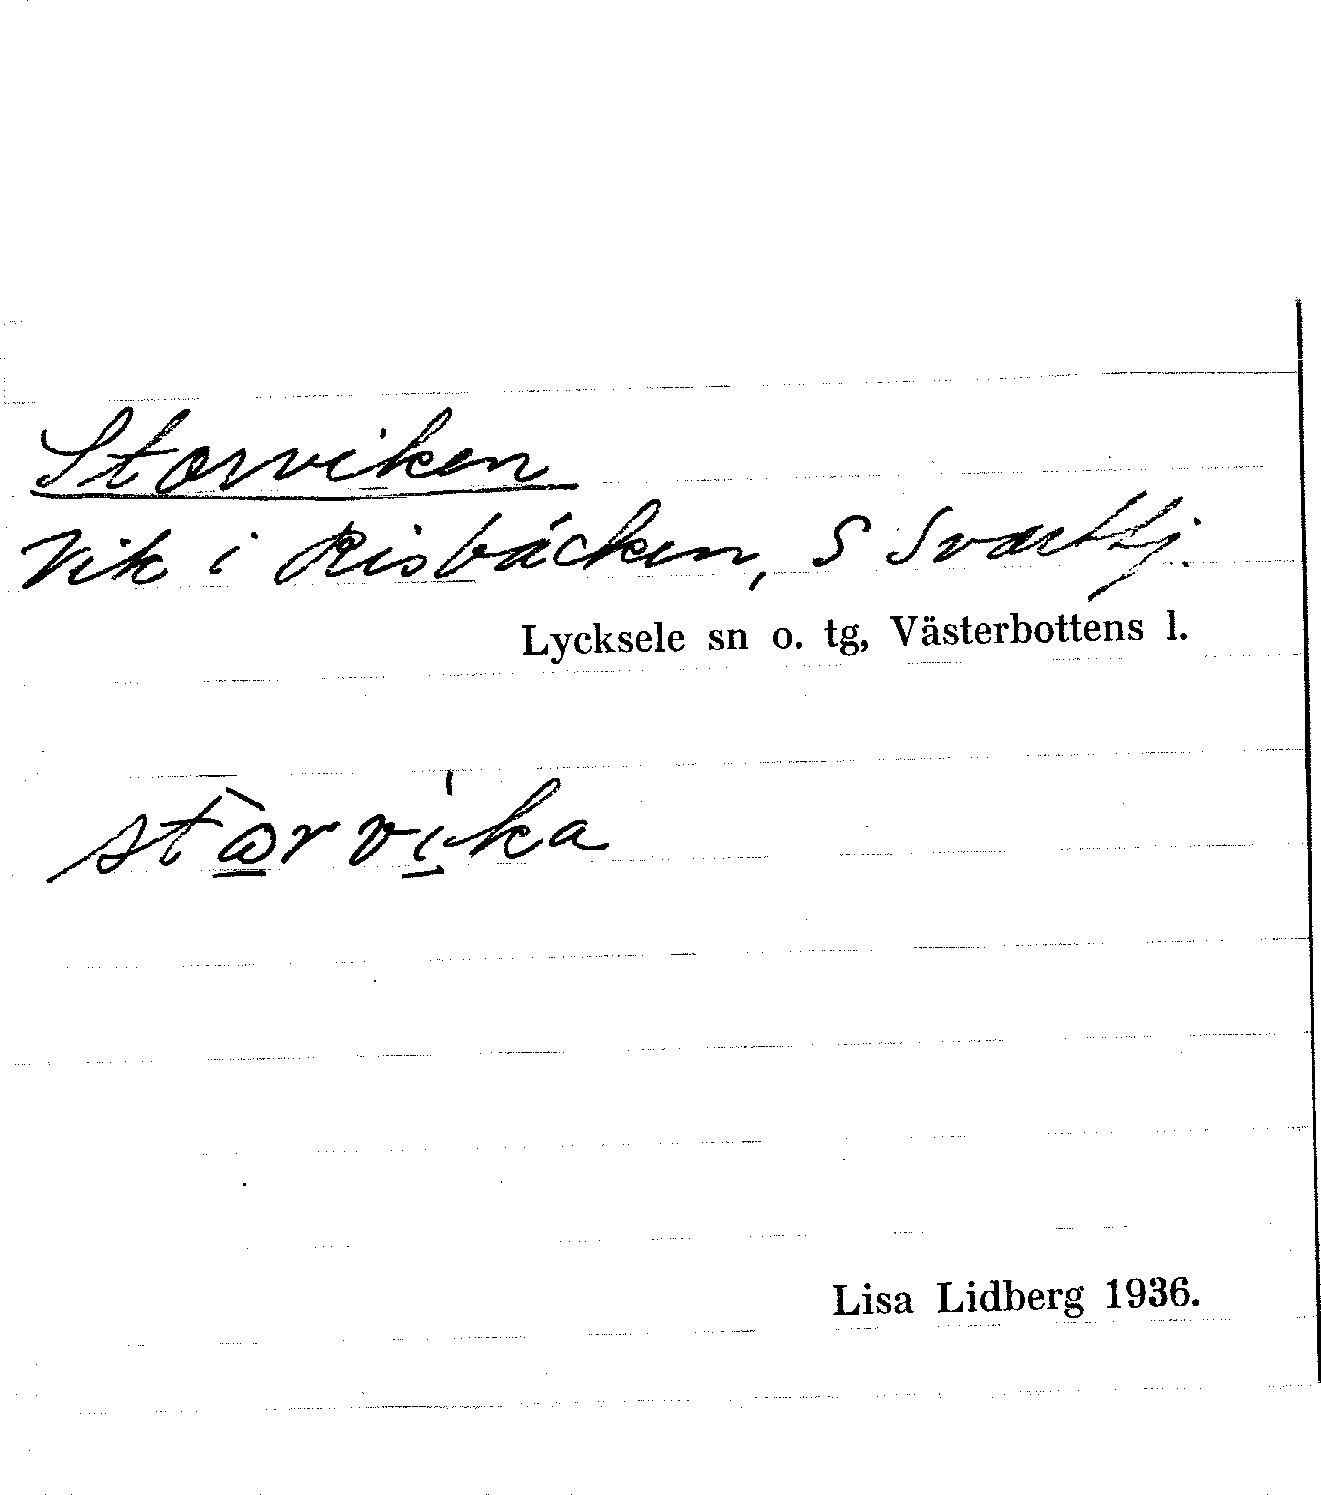 Storviken
Vik i Risbäcken, S Svarttj.
Lycksele sn o. tg, Västerbottens l.
stòrvi̍ka
Lisa Lidberg 1936.